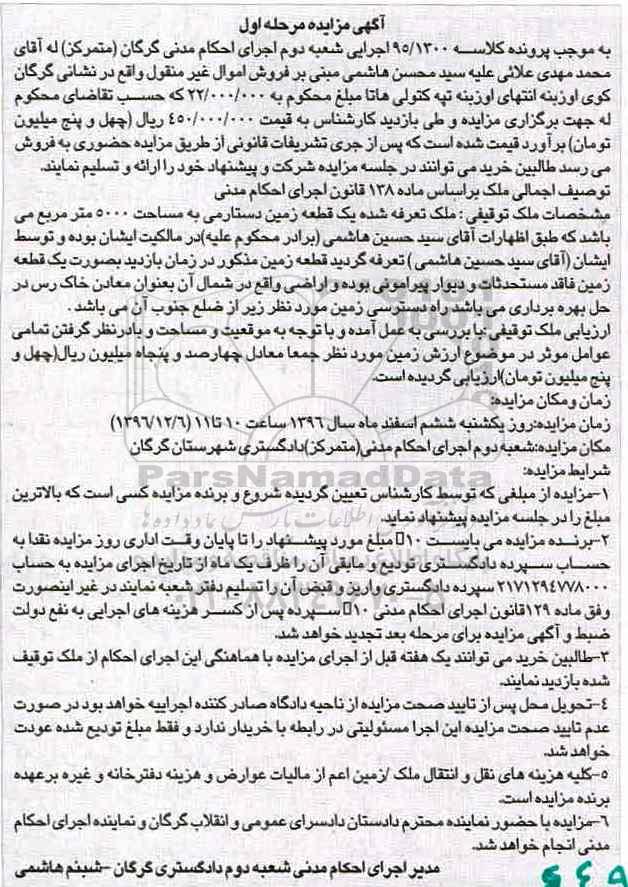 آگهی مزایده مرحله اول
به موجب پرونده کلاسه ۹۵/۱۳۰۰ اجرایی شعبه دوم اجرای احکام مدنی گرگان (متمرکز) له آقای
محمد مهدی علائی علیه سید محسن هاشمی مبنی بر فروش اموال غیر منقول واقع در نشانی گرگان
کوی اوزینه انتهای اوزینه تپه کتولی هاتا مبلغ محکوم به ۲۲/۰۰۰/۰۰۰ که حسب تقاضای محکوم
له جهت برگزاری مزایده و طی بازدید کارشناس به قیمت ۴۵۰/۰۰۰/۰۰۰ ریال (چهل و پنج میلیون
تومان) برآورد قیمت شده است که پس از جری تشریفات قانونی از طریق مزایده حضوری به فروش
می رسد طالبین خرید می توانند در جلسه مزایده شرکت و پیشنهاد خود را ارائه و تسلیم نمایند.
توصیف اجمالی ملک براساس ماده ۱۳۸ قانون اجرای احکام مدنی
مشخصات ملک توقیفی : ملک تعرفه شده یک قطعه زمین دستارمی به مساحت ۵۰۰۰ متر مربع می
باشد که طبق اظهارات آقای سید حسین هاشمی (برادر محکوم علیه)در مالکیت ایشان بوده و توسط
ایشان (آقای سید حسین هاشمی ) تعرفه گردید قطعه زمین مذکور در زمان بازدید بصورت یک قطعه
زمین فاقد مستحدثات و دیوار پیرامونی بوده و اراضی واقع در شمال آن بعنوان معادن خاک رس در
حل بهره برداری می باشد راه دسترسی زمین مورد نظر زیر از ضلع جنوب آن می باشد .
ارزیابی ملک توقیفی :با بررسی به عمل آمده و با توجه به موقعیت و مساحت و بادرنظر گرفتن تمامی
عوامل موثر در موضوع ارزش زمین مورد نظر جمعا معادل چهارصد و پنجاه میلیون ریال(چهل و
پنج میلیون تومان)ارزیابی گردیده است.
زمان و مکان مزایده:
زمان مزایده:روز یکشنبه ششم اسفند ماه سال ۱۳۹۶ ساعت ۱۰ تا ۱۱ (۱۳۹۶/۱۲/۶)
مکان مزایده:شعبه دوم اجرای احکام مدنی(متمرکز)دادگستری شهرستان گرگان
شرایط مزایده:
ParsNamadData
۱-مزایده از مبلغی که توسط کارشناس تعیین گردیده شروع و برنده مزایده کسی است که بالاترین
مبلغ را در جلسه مزایده پیشنهاد نماید.
۲-برنده مزایده می بایست ۱۰٪ مبلغ مورد پیشنهاد را تا پایان وقت اداری روز مزایده نقدا به
حساب سپرده دادگستری تودیع و مابقی آن را ظرف یک ماه از تاریخ اجرای مزایده به حساب
۲۱۷۱۲۹۴۷۷۸۰۰۰ سپرده دادگستری واریز و قبض آن را تسلیم دفتر شعبه نمایند در غیر اینصورت
وفق ماده ۱۲۹قانون اجرای احکام مدنی ۱۰٪ سپرده پس از کسر هزینه های اجرایی به نفع دولت
ضبط و آگهی مزایده برای مرحله بعد تجدید خواهد شد.
۳-طالبین خرید می توانند یک هفته قبل از اجرای مزایده با هماهنگی این اجرای احکام از ملک توقیف
شده بازدید نمایند.
۴-تحویل محل پس از تایید صحت مزایده از ناحیه دادگاه صادر کننده اجراییه خواهد بود در صورت
عدم تایید صحت مزایده این اجرا مسئولیتی در رابطه با خریدار ندارد و فقط مبلغ تودیع شده عودت
خواهد شد.
۵-کلیه هزینه های نقل و انتقال ملک /زمین اعم از مالیات عوارض و هزینه دفترخانه و غیره برعهده
برنده مزایده است.
۶-مزایده با حضور نماینده محترم دادستان دادسرای عمومی و انقلاب گرگان و نماینده اجرای احکام
مدنی انجام خواهد شد.
مدیر اجرای احکام مدنی شعبه دوم دادگستری گرگان -شبنم هاشمی